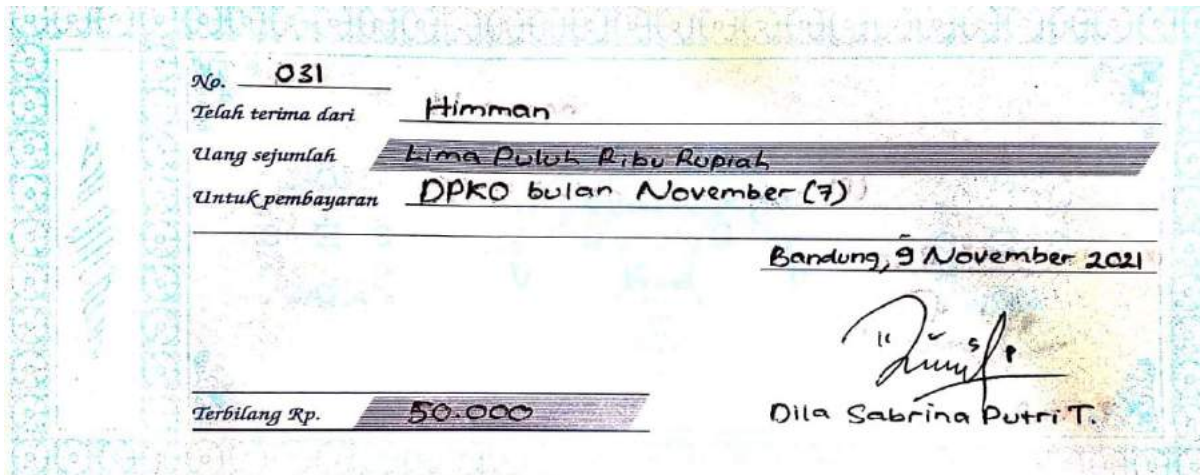 No. 031
Telah terima dari Himman
Uang sejumlah Lima Puluh Ribu Rupiah
Untuk pembayaran DPKO bulan November (7)
Bandung, 9 November 2021
Terbilang Rp. 50.000
Dila Sabrina Putri T.